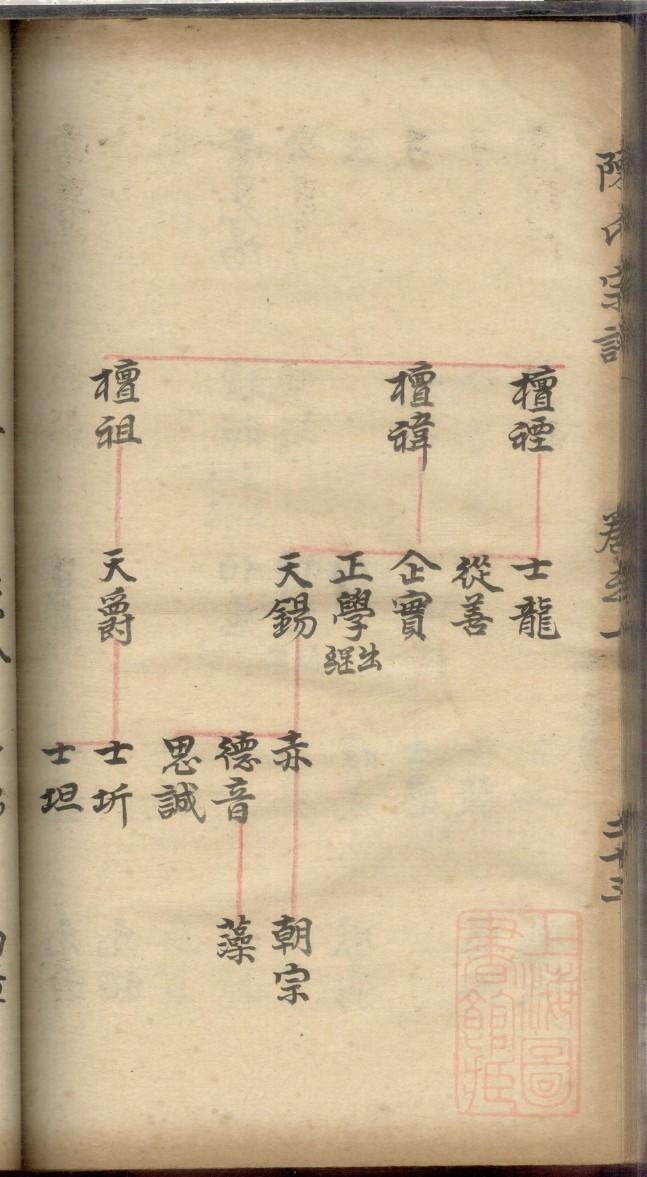 陳氏宗譜
卷之一
二十三
檀禋
檀禕
檀祖
士龍
從善
企實
正學
出継
天錫
天爵
赤
德音
思誠
士圻
士坦
朝宗
藻
上海圖
書館藏